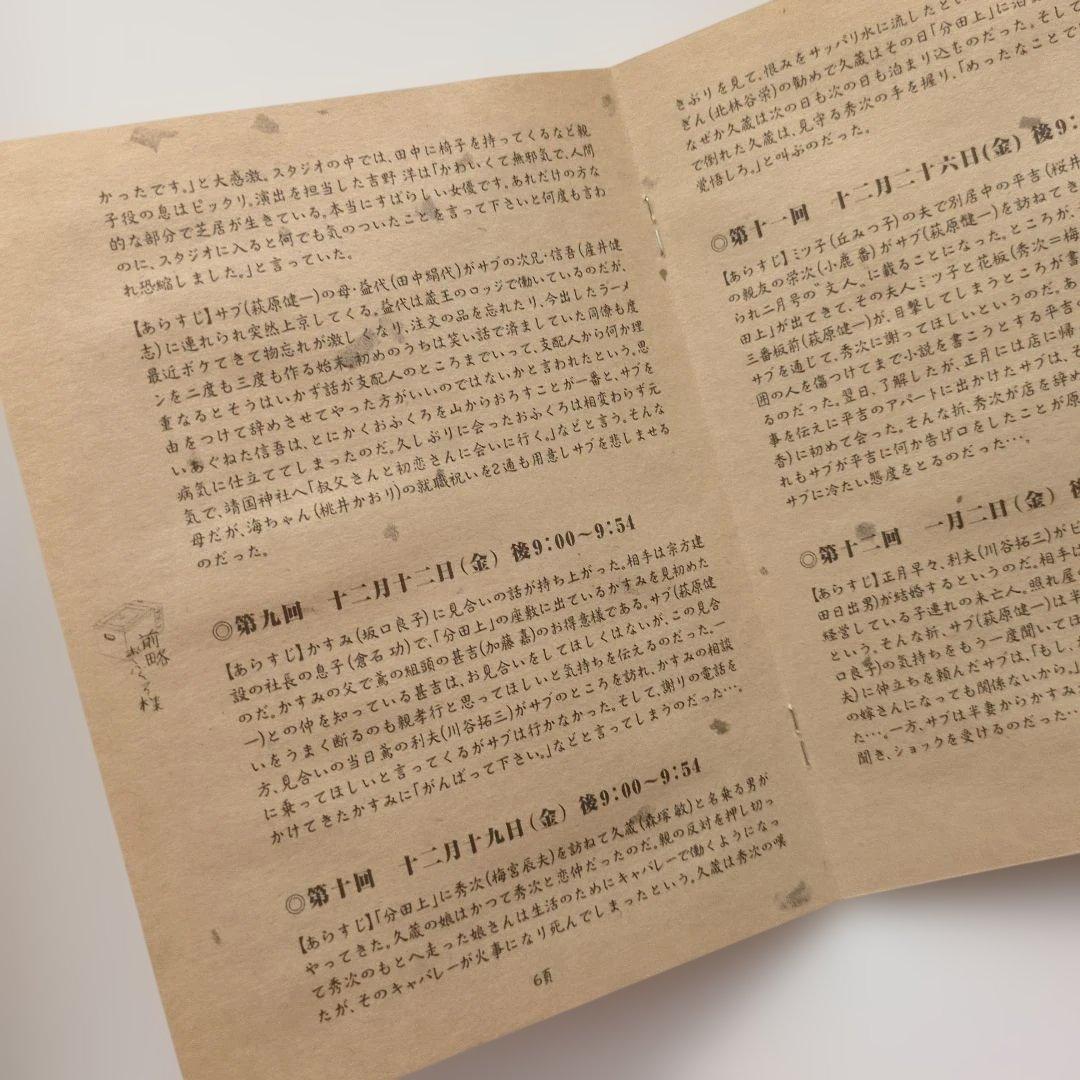 かったです。」と大感激。スタジオの中では、田中に椅子を持ってくるなど親
子役の息はピッタリ。演出を担当した吉野 洋は「かわいくて無邪気で、人間
的な部分で芝居が生きている。本当にすばらしい女優です。あれだけの方な
のに、スタジオに入ると何でも気のついたことを言って下さいと何度も言わ
れ恐縮しました。」と言っていた。
【あらすじ】サブ(萩原健一)の母・益代(田中絹代)がサブの次兄・信吾(産井健
志)に連れられ突然上京してくる。益代は蔵王のロッジで働いているのだが、
最近ボケてきて物忘れが激しくなり、注文の品を忘れたり、今出したラーメ
ンを二度も三度も作る始末。初めのうちは笑い話で済ましていた同僚も度
重なるとそうはいかず話が支配人のところまでいって、支配人から何か理
由をつけて辞めさせてやった方がいいのではないかと言われたという。思
いあぐねた信吾は、とにかくおふくろを山からおろすことが一番と、サブを
病気に仕立ててしまったのだ。久しぶりに会ったおふくろは相変わらず元
気で、靖国神社へ「叔父さんと初恋さんに会いに行く。」などと言う。そんな
母だが、海ちゃん(桃井かおり)の就職祝いを2通も用意しサブを悲しませる
のだった。
◎第九回 十二月十二日(金) 後9:00〜9:54
【あらすじ】かすみ(坂口良子)に見合いの話が持ち上がった。相手は宗方建
設の社長の息子(倉石 功)で、「分田上」の座敷に出ているかすみを見初めた
のだ。かすみの父で鳶の組頭の甚吉(加藤 嘉)のお得意様である。サブ(萩原健
一)との仲を知っている甚吉は、お見合いをしてほしくはないが、この見合
いをうまく断るのも親孝行と思ってほしいと気持ちを伝えるのだった。一
方、見合いの当日鳶の利夫(川谷拓三)がサブのところを訪れ、かすみの相談
に乗ってほしいと言ってくるがサブは行かなかった。そして、謝りの電話を
かけてきたかすみに「がんばって下さい。」などと言ってしまうのだった…。
◎第十回 十二月十九日(金) 後9:00〜9:54
【あらすじ】「分田上」に秀次(梅宮辰夫)を訪ねて久蔵(森塚 敏)と名乗る男が
やってきた。久蔵の娘はかつて秀次と恋仲だったのだ。親の反対を押し切っ
て秀次のもとへ走った娘さんは生活のためにキャバレーで働くようになっ
たが、そのキャバレーが火事になり死んでしまったという。久蔵は秀次の嘆
6頁
前略
おふくろ様
きぶりを見て、恨みをサッパリ水に流したとい
ぎん(北林谷栄)の勧めで久蔵はその日「分田上」に泊
なぜか久蔵は次の日も次の日も泊まり込むのだった。そして
で倒れた久蔵は、見守る秀次の手を握り、「めったなことで
覚悟しろ。」と叫ぶのだった。
◎第十一回 十二月二十六日(金) 後9:
【あらすじ】ミツ子(丘みつ子)の夫で別居中の平吉(桜井
の親友の栄次(小鹿 番)がサブ(萩原健一)を訪ねてき
られ二月号の〝文人〟に載ることになった。ところが、
田上」が出てきて、その夫人ミツ子と花板(秀次=梅
三番板前(萩原健一)が、目撃してしまうところが書
サブを通じて、秀次に謝ってほしいというのだ。あ
囲の人を傷つけてまで小説を書こうとする平吉
るのだった。翌日、了解したが、正月には店に帰
事を伝えに平吉のアパートに出かけたサブは、そ
香)に初めて会った。そんな折、秀次が店を辞め
れもサブが平吉に何か告げ口をしたことが原
サブに冷たい態度をとるのだった…。
◎第十二回 一月二日(金)
【あらすじ】正月早々、利夫(川谷拓三)がビ
田日出男)が結婚するというのだ。相手は
経営している子連れの未亡人。照れ屋の
という。そんな折、サブ(萩原健一)は半
口良子)の気持ちをもう一度聞いてほ
夫)に仲立ちを頼んだサブは、「もし、
の嫁さんになっても関係ないから。」
た…。一方、サブは半妻からかすみ
聞き、ショックを受けるのだった…